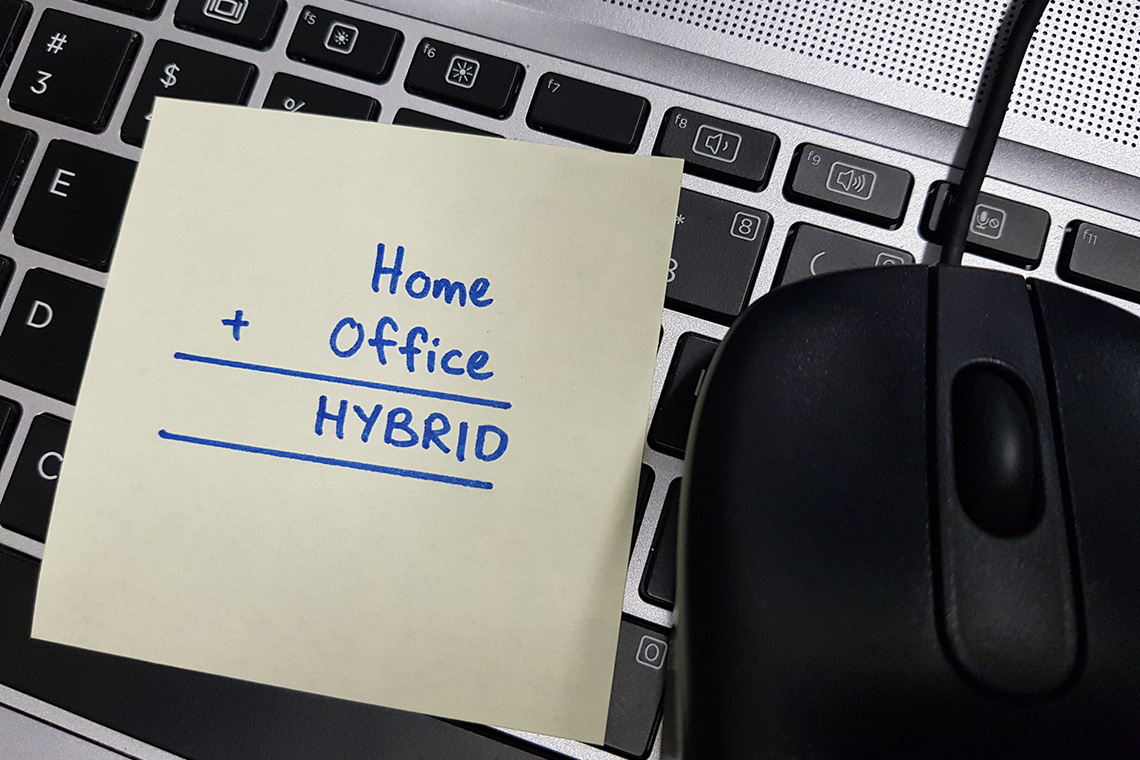 f5
f6
f7
f8
f9
f11
#
3
$
%
*
8
E
D
C
0
Home
+ Office
HYBRID